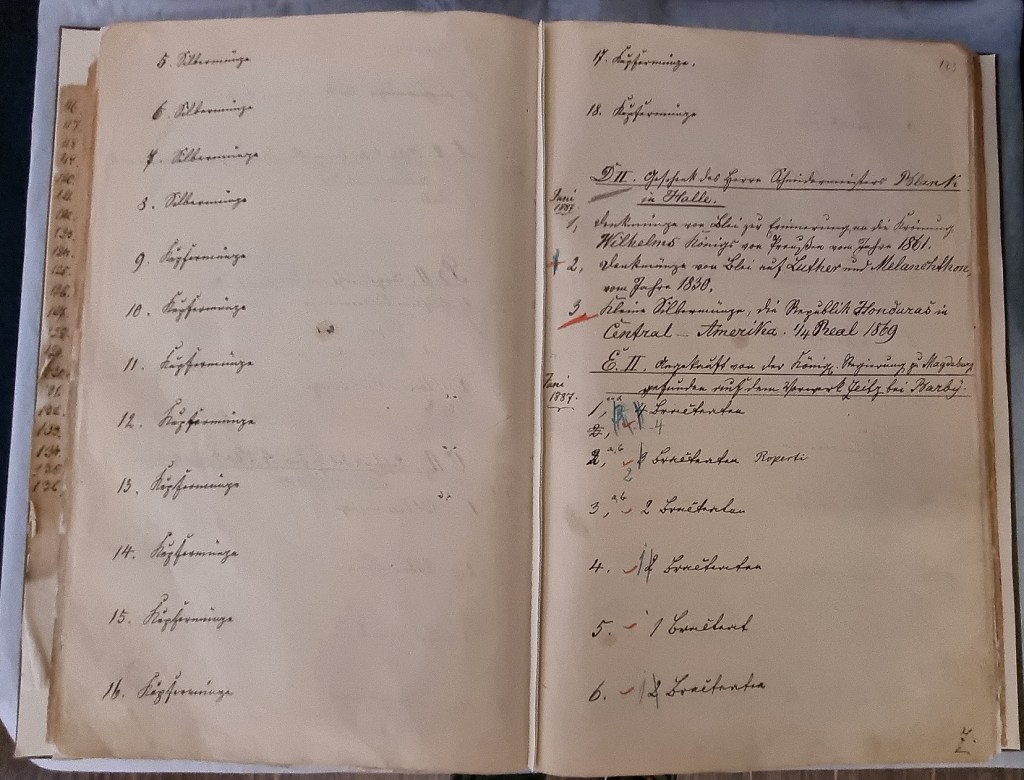 5. Silbermünze
6. Silbermünze
7. Silbermünze
8. Silbermünze
9. Kupfermünze
10. Kupfermünze
11. Kupfermünze
12. Kupfermünze
13. Kupfermünze
14. Kupfermünze
15. Kupfermünze
16. Kupfermünze
17. Kupfermünze.
18. Kupfermünze
D II. Geschenk des Herrn Schneidermeisters Blank
in Halle.
Juni
1887
1, Denkmünze von Blei zur Erinnerung an die Krönung
Wilhelms Königs von Preußen vom Jahre 1861.
2, Denkmünze von Blei auf Luther und Melanchthon,
vom Jahre 1830.
3 Kleine Silbermünze, die Republik Honduras in
Central-Amerika. 1/4 Real 1869
E. II. Angekauft von der König. Regierung zu Magdeburg
gefunden auf dem Vorwerk Zeitz bei Barby.
Juni
1887.
1, 4 Bracteaten
4
2, a, b Bracteaten Roperti
2
3, a, b 2 Bracteaten
4. 1 Bracteaten
5. 1 Bracteat
6. 1 Bracteaten
7.